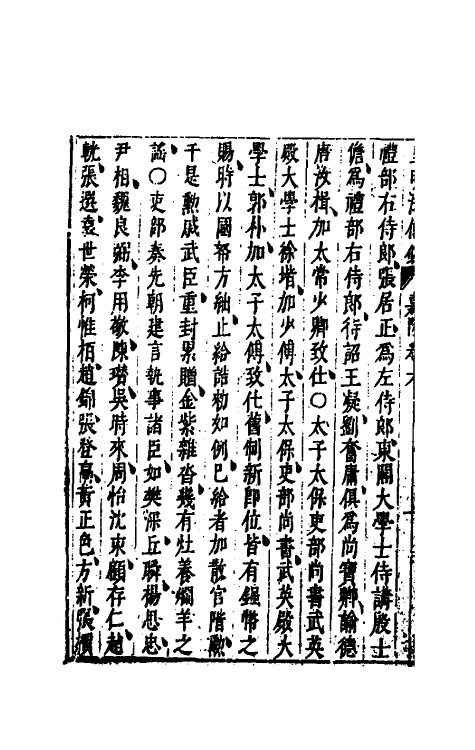 禮部右侍郎張居正為左侍郎東閣大學士侍講殷士
儋為禮部右侍郎待詔王凝劉奮庸俱為尚寶卿諭德
唐汝楫加太常少卿致仕〇太子太保吏部尚書武英
殿大學士徐堦加少傅太子太保吏部尚書武英殿大
學士郭朴加太子太傅致仕舊制新即位皆有鏹幣之
賜時以國帑方紬止給誥勑如例巳給者加散官階勲
于是勲戚武臣重封累贈金紫雜沓幾有灶養爛羊之
謡〇吏部奏先朝建言執事諸臣如樊深丘橓楊思忠
尹相魏良弼李用敬陳瓚吳時來周怡沈束顧存仁趙
輄張選袁世榮柯惟栢趙錦張登高黃正色方新張檟